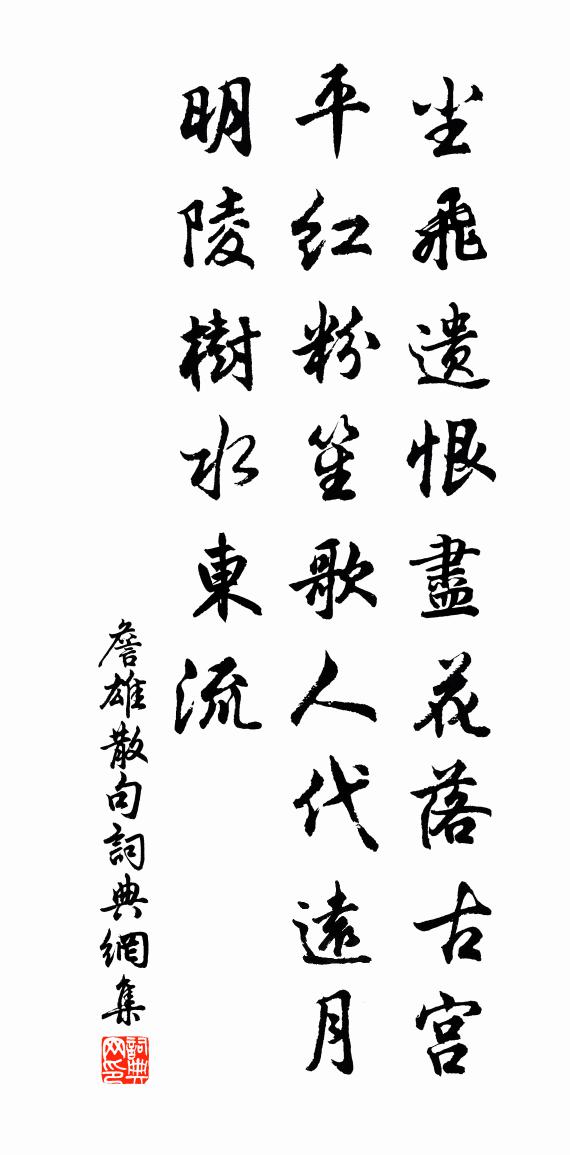 尘飛遗恨盡花落古宫
平红粉笙歌人代遠月
明陵樹水東流
詹雄散句詞典網集
詞典网印